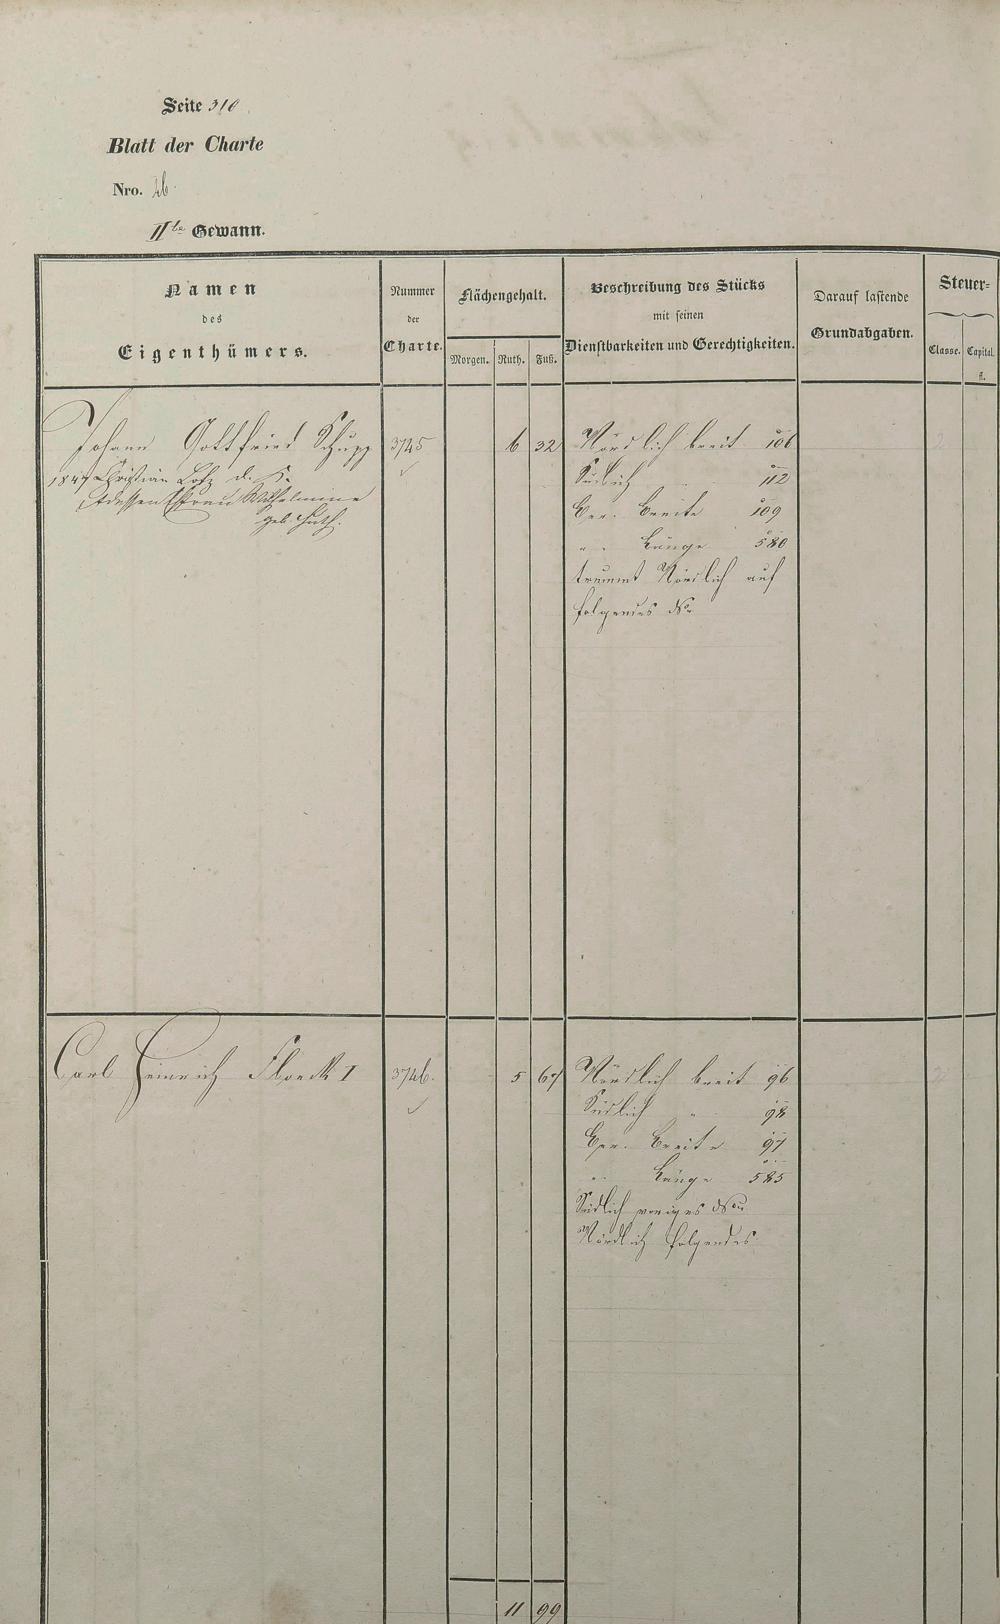 Seite 310
Blatt der Charte
Nro. 26.
IIte Gewann.
Namen
des
Eigenthümers.
Nummer
der
Charte.
Flächengehalt.
Morgen. Ruth. Fuß.
Beschreibung des Stücks
mit seinen
Dienstbarkeiten und Gerechtigkeiten.
Darauf lastende
Grundabgaben.
Steuer-
Classe. Capital.
fl.
Johann Gottfried Schupp 3745 6 32 Nördlich breit 106
1847 Christian Lotz d. K. Südlich " 112
dessen Ehefrau Wilhelmine
geb. Huth.
Ger. Breite 109
" Länge 580
Nördlich auf
folgendes No
Carl Heinrich Floeck I 3746. 5 67 Nördlich breit 96
Südlich " 98
Ger. Breite 97
" Länge 585
Südlich voriges No u
Nördlich folgendes
11 99